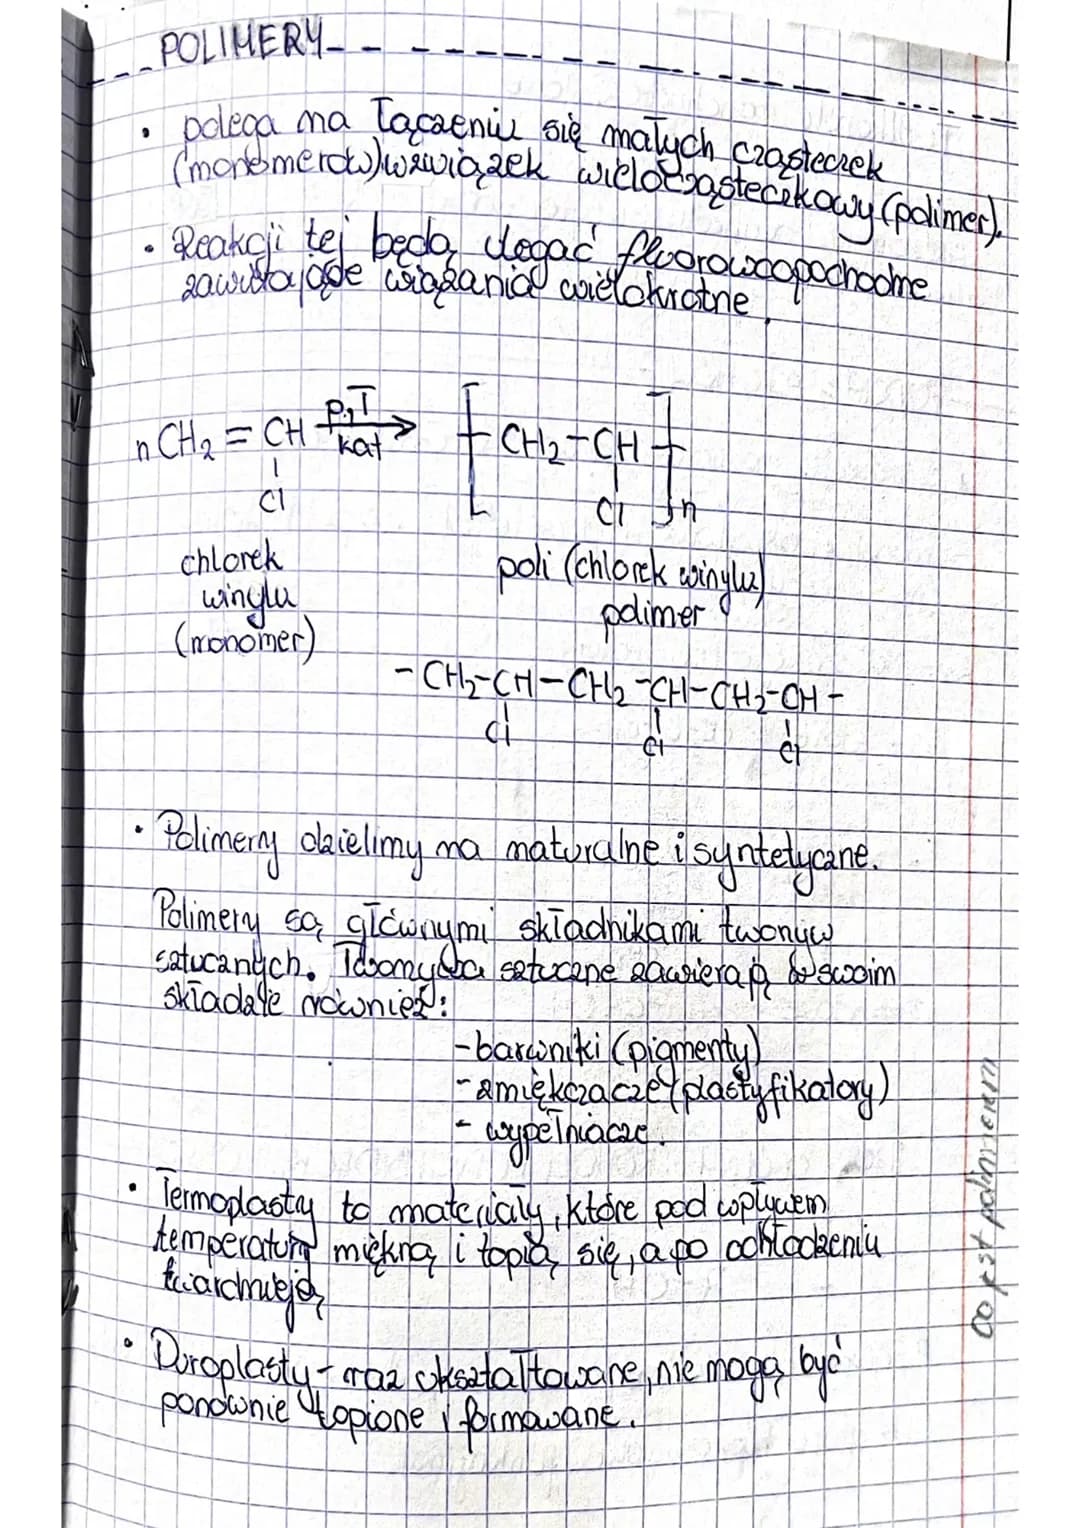 POLIMERY
• polega na łączeniu się małych cząsteczek
(monomerów) w związek wielocząsteczkowy (polimer).
• Reakcji tej będą ulegać fluorowcopochodne
zawierające wiązania wielokrotne.
nCH2 = CH p,T kat → [ CH2-CH ]n
Cl Cl
chlorek
winylu
(monomer)
poli (chlorek winylu)
polimer
- CH2-CH-CH2-CH-CH2-CH-
Cl Cl Cl
• Polimery dzielimy na naturalne i syntetyczne.
Polimery są głównymi składnikami tworzyw
sztucznych. Tworzywa sztuczne zawierają w swoim
składzie również:
- barwniki (pigmenty)
- zmiękczacze (plastyfikatory)
- wypełniacze.
• Termoplasty to materiały, które pod wpływem
temperatury miękną i topią się, a po ochłodzeniu
twardnieją
• Duroplasty - raz ukształtowane, nie mogą być
ponownie topione i formowane.
co jest polimerem